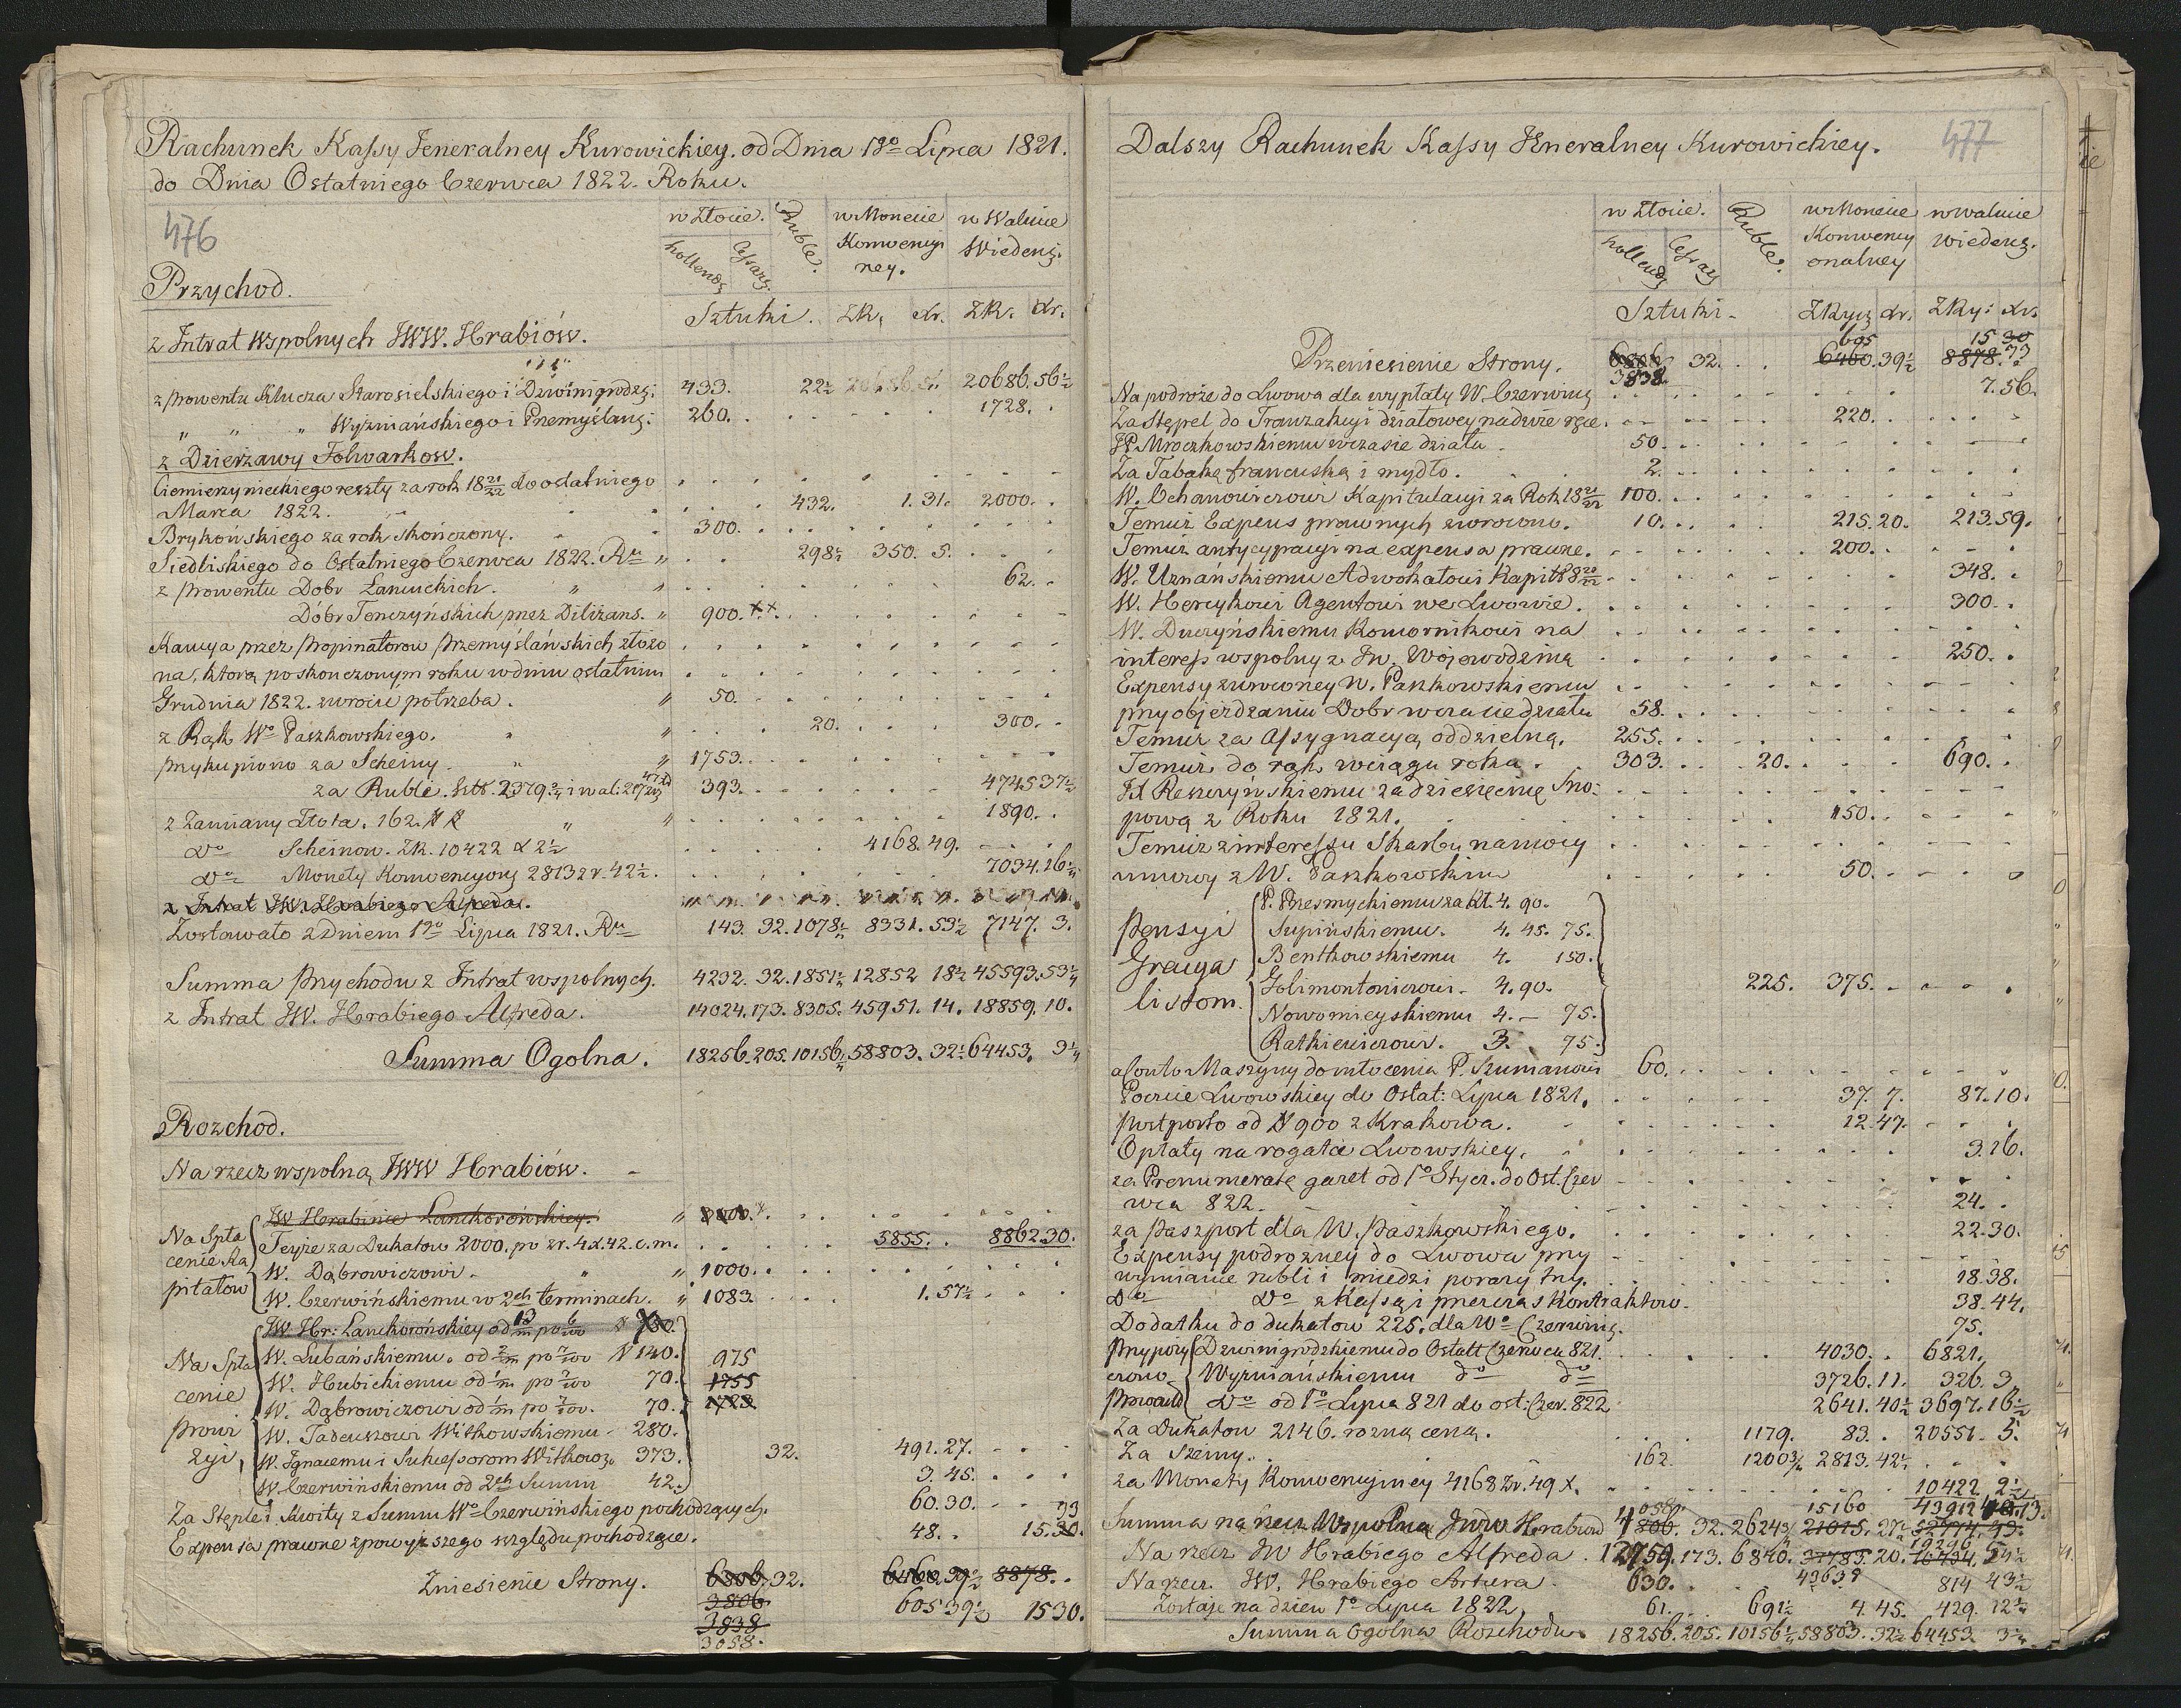 Rachunek Kassy Jeneralney Kurowickiey. od Dnia 1go Lipca 1821.
do Dnia Ostatniego Czerwca 1822. Roku.
476
w Złocie. Ruble. w Monecie Konwencyi ney. w Walucie Wiedeńs.
hollends. Cesarz.
Sztuki. ZR. Xr. ZR. Xr.
Przychod.
z Intrat Wspolnych JWW. Hrabiów.
z prowentu Klucza Starosielskiego i Dzwinigrodz: 433. 22½ 20686. 56½
" " " Wyżniańskiego i Przemyślans: 260. . 1728. .
z Dzierżawy Folwarkow.
Ciemierzynieckiego reszty za rok 18 21/22 do ostatniego
Marca 1822. 432. 1. 31. 2000. .
Brykońskiego za rok skończony. 300. .
Siedliskiego do Ostatniego Czerwca 1822. Ru 298½ 350. 5.
z prowentu Dobr Łancuckich. " " 62. .
Dóbr Tenczyńskich przez Diliżans. " 900. xx.
Kaucya przez Propinatorow Przemyślańskich złożo
na, ktorą po skonczonym roku w dniu ostatnim
Grudnia 1822. zwrocić potrzeba. " 50.
z Rąk Wo Paszkowskiego. " " 20. 300. .
przykupiono za Scheiny. " " 1753. .
za Ruble. 393. 4745 37½
z Zamiany Złota. 162. " " 1890. .
do Scheinow. ZR. 10422 X 2½ 4168. 49.
do Monety Konwencyony 2813 zr. 42½. 7034. 16¼
z Intrat JW. Hrabiego Alfreda.
Zostawało z Dniem 1go Lipca 1821. Ru 143. 32. 1078½ 8331. 53½ 7147. 3.
Summa Przychodu z Intrat wspolnych. 4232. 32. 1851½ 12852 18½ 45593. 53¼
z Intrat JW. Hrabiego Alfreda. 14024. 173. 8305. 45951. 14. 18859. 10.
Summa Ogolna. 18256. 205. 10156½ 58803. 32½ 64453. 3¼
Rozchod.
Na rzecz wspolną JWW Hrabiów.
Na Spła cenie Ka pitałow
JW Hrabinie Lanckorońskiey. "
Teyże za Dukatow 2000. po zr. 4 X. 42. c. m. 5855. . 8862. 30.
W. Dąbrowiczowi. " " 1000. .
W. Czerwińskiemu w 2ch terminach. " 1083 1. 57½
Na Spła cenie Prowi zyi,
JW. Hr: Lanckorońskiey od 13/m po 6/100
W. Lubańskiemu. od 2/m po 7/100 # 140. 975
W. Hubickiemu od 1/m po 7/100 70. 1755
W. Dąbrowiczowi od 1/m po 7/100. 70.
W. Tadeuszowi Witkowskiemu 280.
W. Ignacemu i Sukcessorom Witkows. 373. 32. 491. 27.
W. Czerwińskiemu od 2ch Summ 42. 3. 45.
Za Stęple i kwity z Summ Wo Czerwińskiego pochodzących. 60. 30.
Expensa prawne z powyższego względu pochodzące. 48. . 15. 30. 33
Zniesienie Strony. 6806. 32. 6460. 39½ 8878. .
3806 605 39½ 1530.
3838
3058.
Dalszy Rachunek Kassy Jeneralney Kurowickiey.
477
w Złocie. Ruble. w Monecie Konwency onalney w walucie wiedens.
hollends Cesarz
Sztuki. ZRyz Xr. ZRy: Xr.
605 15 30
Przeniesienie Strony. 6806 32. . 6460. 39½ 8878. 33
3838.
Na podroże do Lwowa dla wypłaty W. Czerwińs 7. 56.
Za Stępel do Tranzakcyi działowey na dwie ręce. 220. .
JP. Mroczkowskiemu w czasie działu. 50. .
Za Tabakę francuską i mydło. 2. .
W. Ochanowiczowi Kapitulacyi za Rok 18 21/22 100. .
Temuż Expens prawnych zwrocono. 10. . 215. 20. 213. 59.
Temuż antycypacyi na expensa prawne. 200. .
W. Uznańskiemu Adwokatowi Kapit. 348. .
W. Hercykowi Agentowi we Lwowie. 300. .
W. Duczyńskiemu Komornikowi na
interess wspolny z Jw. Wojewodziną 250. .
Expensy zwroconey W. Paszkowskiemu
przy objeżdzaniu Dobr w czasie działu 58. .
Temuż za Assygnacyą oddzielną. 255. .
Temuż do rąk w ciągu roku. 303. . 20. 690. .
JX Reszczyńskiemu za dziesięcinę Sno-
pową z Roku 1821. 150. .
Temuż z interessu Skarbu na mocy
umowy z W. Paszkowskim 50. .
Pensyi Gracya listom.
P. Przesmyckiemu za Kt. 4. 90.
Supińskiemu. 4. 45. 75.
Bentkowskiemu 4. 150.
Golimontowiczowi. 4. 90. 225. 375.
Nowomieyskiemu 4. — 75.
Ratkiewiczowi. 3. 75.
a Conto Maszyny do młocenia P. Szumanowi 60. .
Poczcie Lwowskiey do Ostat: Lipca 1821. 37. 7. 87. 10.
Portporto od # 900 z Krakowa. 12. 47.
Opłaty na rogatce Lwowskiey. 3. 16.
za Prenumeratę gazet od 1o Stycz. do Ost. Czer
wca 822. 24. .
za paszport dla W. Paszkowskiego. 22. 30.
Expensy podrozney do Lwowa przy
wymianie rubli i miedzi po razy trzy. 18. 38.
do do z Kassą i przez czas Kontraktow. 38. 44.
Dodatku do dukatow 225. dla Wo Czerwińs. 75.
Przypory czono Prowent
Dzwinigrodzkiemu do Ostatt Czerwca 821. 4030. . 6821.
Wyżniańskiemu do do 3726. 11. 326. 3.
do od 1o Lipca 821 do ost: Czer. 822 2641. 40½ 3697. 16½
Za Dukatow 2146. rozną ceną. 1179. 83. . 20551. 5.
Za Szeiny. 162. 1200¾ 2813. 42½
za Monety Konwencyiney 4168 Zr. 49 X. 10422 2½
15160 43912 13.
Summa na rzecz Wspolną Jww Hrabiow 4806. 32. 2624¾ 21015. 27½
Na rzecz JW Hrabiego Alfreda. 12759. 173. 6840. 37785. 20. 19296
Na rzecz JW. Hrabiego Artura. 630. . 43638 814 43½
Zostaje na dzien 1o Lipca 1822. 61. . 691½ 4. 45. 429. 12½
Summa Ogolna Rozchodu. 18256. 205. 10156½ 58803. 32½ 64453 3¼